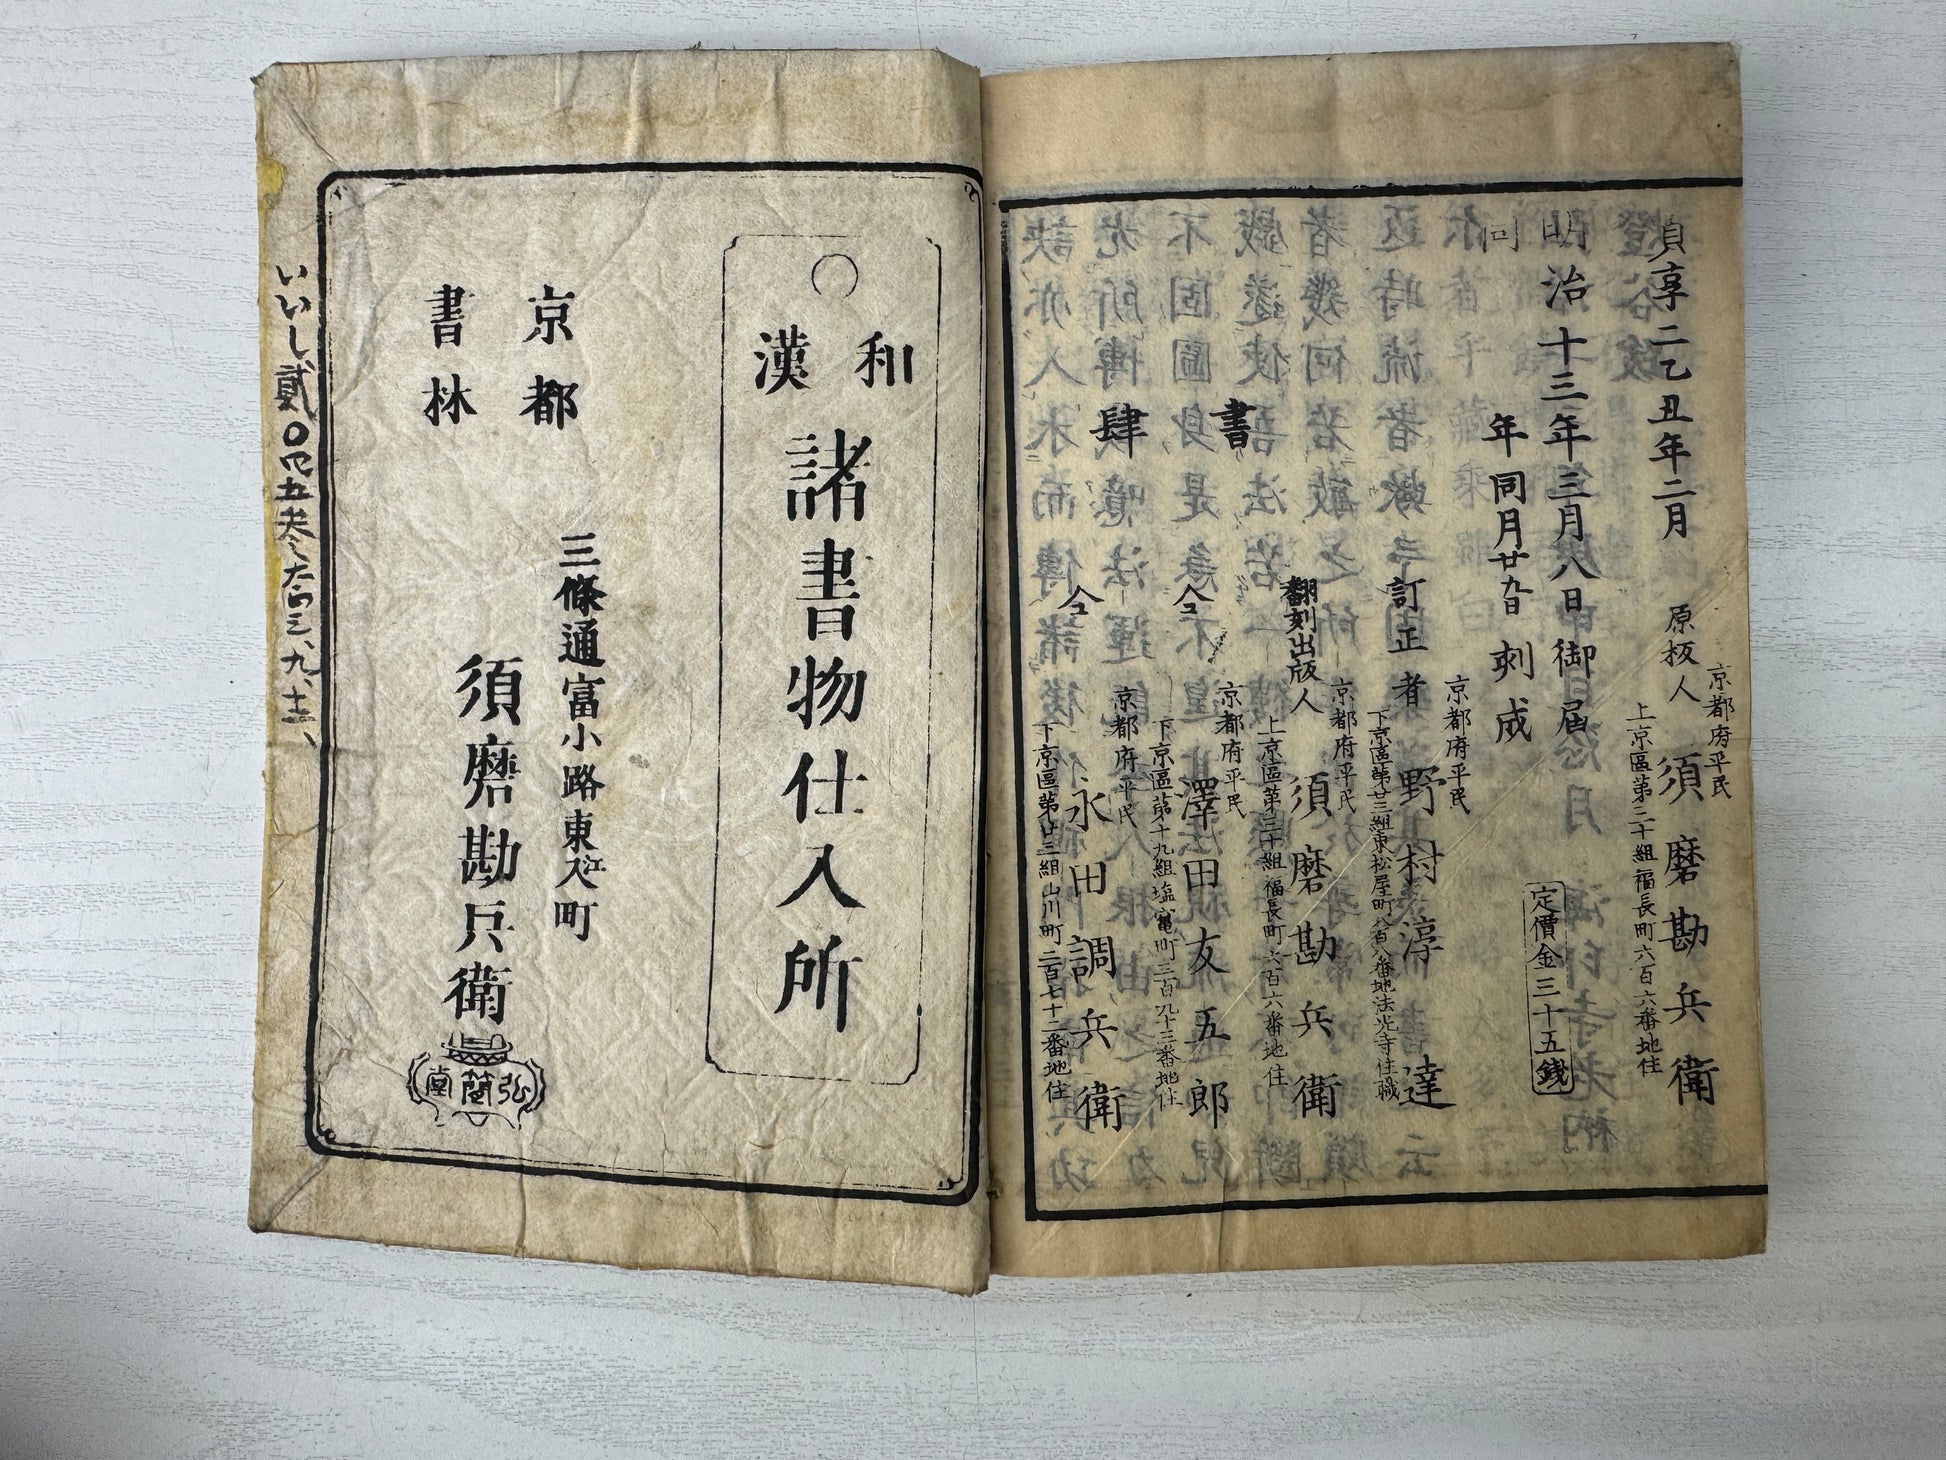 貞享二乙丑年二月
原板人
京都府平民
上京區第三十組福長町六百六番地住
須磨勘兵衛
明治十三年三月八日御届
定價金三十五銭
同年同月廿九日刻成
訂正者
京都府平民
下京區第廿三組東松屋町八百八番地法光寺住職
野村淳達
書肆
翻刻出版人
京都府平民
上京區第三十組福長町六百六番地住
須磨勘兵衛
仝
京都府平民
下京區第十九組塩竃町三百九十三番地住
澤田友五郎
仝
京都府平民
下京區第廿三組山川町二百七十二番地住
永田調兵衛
和漢
諸書物仕入所
京都
書林
三條通富小路東江入町
須磨勘兵衛
弘簡堂